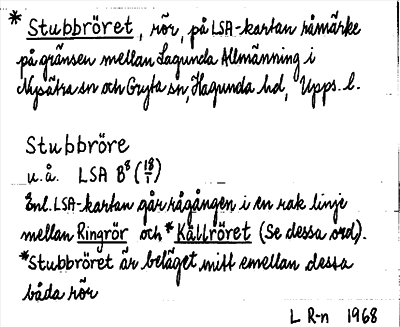 * Stubbröret, rör, på LSA-kartan råmärke
på gränsen mellan Lagunda Allmänning i
Nysätra sn och Gryta sn, Hagunda hd, Upps. l.
Stubbröre
u.å. LSA B⁸ (18/1)
Enl. LSA-kartan går rågången i en rak linje
mellan Ringrör och *Källröret (Se dessa ord).
*Stubbröret är beläget mitt emellan dessa
båda rör
L R-n 1968